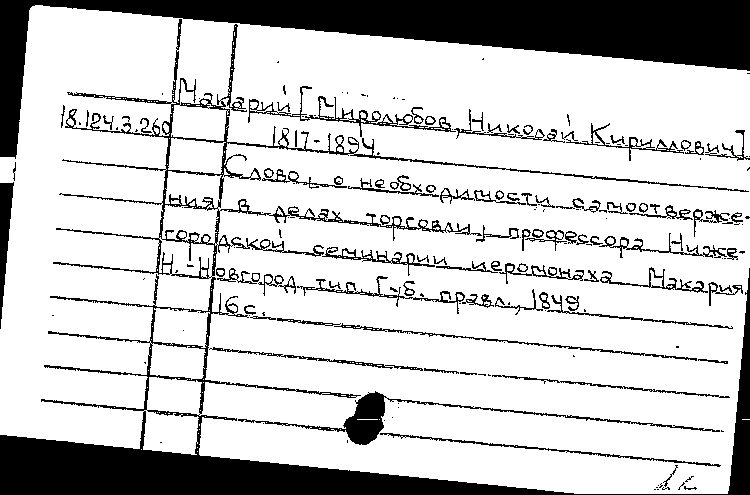 Макарий [Миролюбов, Николай Кириллович],
18.124.3.260
1817-1894.
Слово, о необходимости самоотверже-
ния в делах торговли, профессора Ниже-
городской семинарии иеромонаха Макария.
Н.-Новгород, тип. Губ. правл., 1849.
16 с.